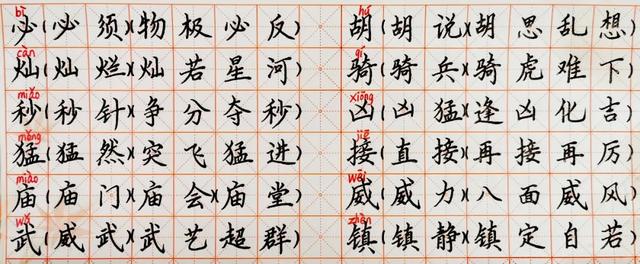 bì hú
必(必须)(物极必反) 胡(胡说)(胡思乱想)
càn qí
灿(灿烂)(灿若星河) 骑(骑兵)(骑虎难下)
miǎo xiōng
秒(秒针)(争分夺秒) 凶(凶猛)(逢凶化吉)
měng jiē
猛(猛然)(突飞猛进) 接(直接)(再接再厉)
miào wēi
庙(庙门)(庙会)(庙堂) 威(威力)(八面威风)
wǔ zhèn
武(威武)(武艺超群) 镇(镇静)(镇定自若)